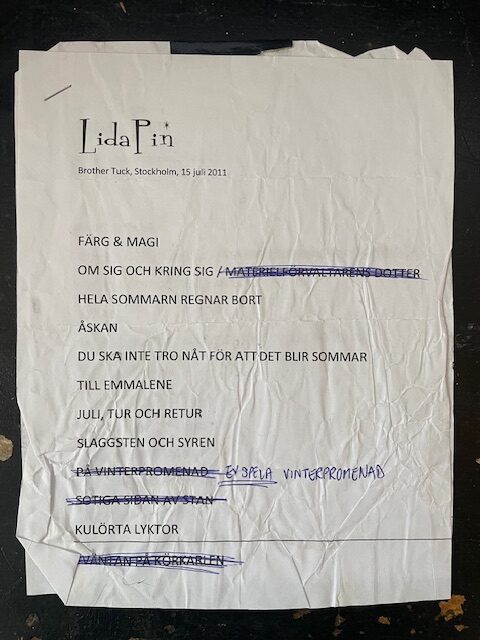 LidaPin
Brother Tuck, Stockholm, 15 juli 2011
FÄRG & MAGI
OM SIG OCH KRING SIG / MATERIELFÖRVALTARENS DOTTER
HELA SOMMARN REGNAR BORT
ÅSKAN
DU SKA INTE TRO NÅT FÖR ATT DET BLIR SOMMAR
TILL EMMALENE
JULI, TUR OCH RETUR
SLAGGSTEN OCH SYREN
PÅ VINTERPROMENAD EJ SPELA VINTERPROMENAD
SOTIGA SIDAN AV STAN
KULÖRTA LYKTOR
VÄNTAN PÅ KÖRKARLEN